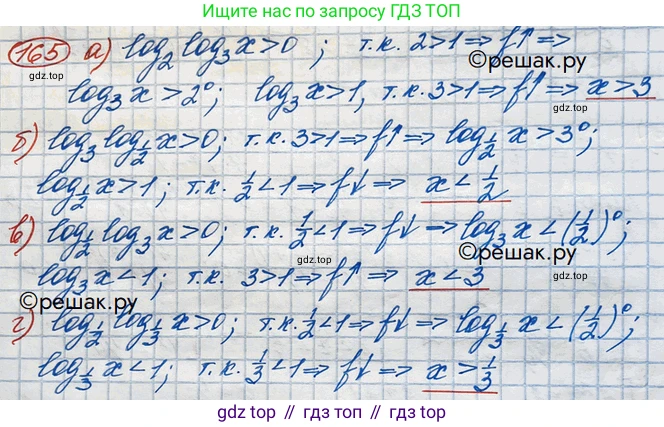 Ищите нас по запросу ГДЗ ТОП
165 а) log₂ log₃ x > 0 ; т.к. 2>1 ⇒ f↑ ⇒
gdz.top
©решак.ру
log₃ x > 2⁰; log₃ x > 1, т.к. 3>1 ⇒ f↑ ⇒ x > 3
gdz.top
б) log₃ log_{1/2} x > 0; т.к. 3>1 ⇒ f↑ ⇒ log_{1/2} x > 3⁰;
log_{1/2} x > 1; т.к. 1/2 < 1 ⇒ f↓ ⇒ x < 1/2
в) log_{1/2} log₃ x > 0; т.к. 1/2 < 1 ⇒ f↓ ⇒ log₃ x < (1/2)⁰;
©решак.ру
log₃ x < 1; т.к. 3>1 ⇒ f↑ ⇒ x < 3
gdz.top
©решак.ру
г) log_{1/2} log_{1/3} x > 0; т.к. 1/2 < 1 ⇒ f↓ ⇒ log_{1/3} x < (1/2)⁰;
gdz.top
log_{1/3} x < 1; т.к. 1/3 < 1 ⇒ f↓ ⇒ x > 1/3
gdz.top // гдз топ // гдз.топ // gdz top